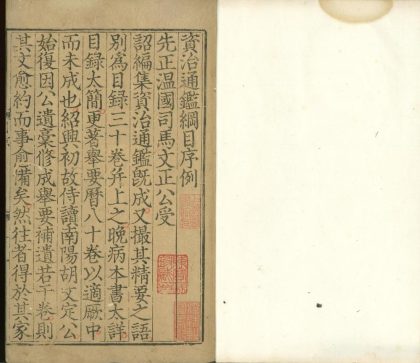 資治通鑑綱目序例
先正溫國司馬文正公受
詔編集資治通鑑既成又撮其精要之語
別爲目録三十卷并上之晚病本書太詳
目録太簡更著舉要曆八十卷以適厥中
而未成也紹興初故侍讀南陽胡文定公
始復因公遺稾修成舉要補遺若干卷則
其文愈約而事愈備矣然往者得於其家